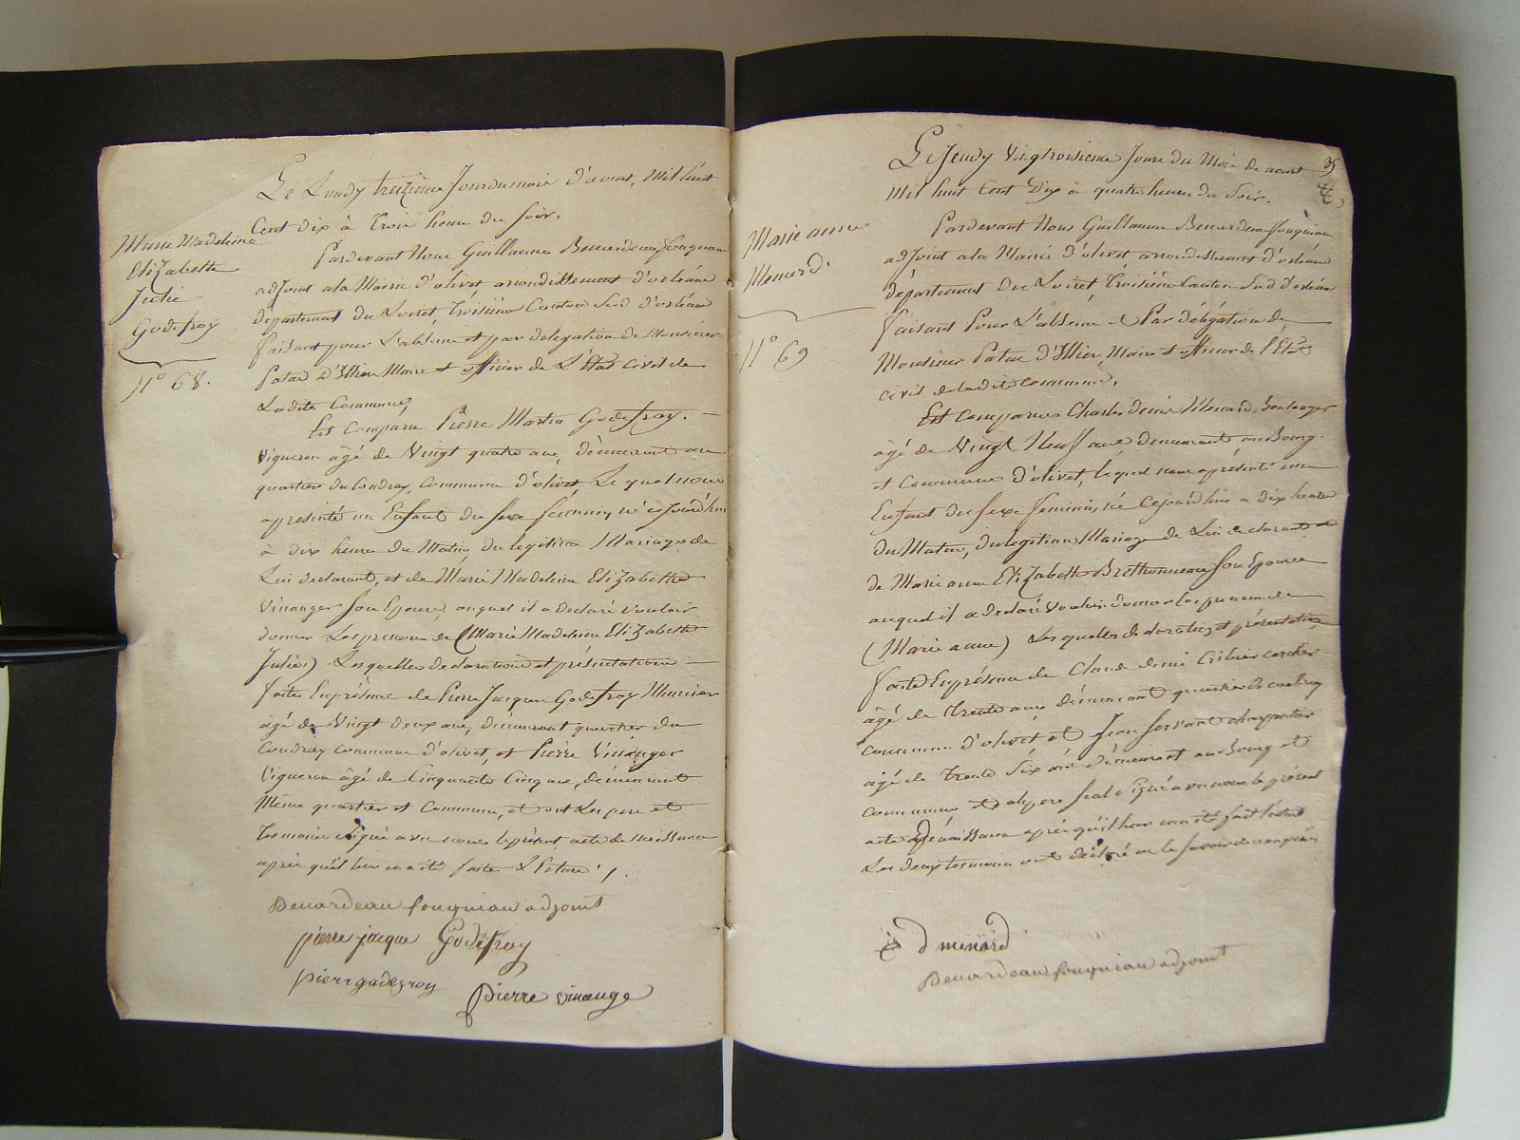 Marie Madeleine
Elizabethe
Julie
Godefroy
N.° 68.
Le Lundy treizieme Jour du mois d'aoust, Mil huit
Cent dix à trois heure du Soir.
Pardevant Nous Guillaume Benardeau fouqueau
adjoint a la Mairie d'olivet arrondissement d'orléans
département du Loiret, troisième Canton Sud d'orléans
faisant pour L'absence et par délégation de Monsieur
Patas d'Illiers Maire et officier de L'Etat Civil de
Ladite Commune,
Est Comparu Pierre Martin Godefroy.
Vigneron âgé de Vingt quatre ans, demeurant au
quartier du Coudray, Commune d'olivet, Lequel nous
a présenté un Enfant du sexe féminin, né cejourd'hui
à dix heure du Matin, du légitime Mariage de
Lui declarant, et de Marie Madeleine Elizabethe
Vinanger son Epouse, auquel il a declaré vouloir
donner Les prenoms de (Marie Madeleine Elizabethe
Julie) Lesquelles declaration et présentation
faites En présence de Pierre Jacque Godefroy
âgé de Vingt deux ans, demeurant quartier du
Coudray commune d'olivet, et Pierre Vinanger
Vigneron âgé de Cinquante Cinq ans, demeurant
Même quartier et Commune, et ont Les pere et
temoins signé avec nous le présent acte de Naissance
après qu'il leur en a été faite Lecture /.
Benardeau fouqueau adjoint
pierre jacque Godefroy
pierre godefroy
pierre vinange
35
Le Jeudy Vingtroisieme Jour du Mois de aoust
Mil huit Cent Dix à quatre heures du Soir.
Marie anne
Menard.
N.° 69
Pardevant Nous Guillaume Benardeau fouqueau
adjoint a la Mairie d'olivet arrondissement d'orléans
département du Loiret, troisième Canton Sud d'orléans
faisant Pour L'absence et Par délégation de
Monsieur Patas d'Illiers, Maire et officier de l'Etat
civil de ladite commune,
Est comparu Charles Menard, boulanger
âgé de Vingt Neuf ans demeurant au Bourg
et Commune d'olivet, lequel nous a présenté un
Enfant du sexe féminin, né Cejourd'hui a dix heures
du Matin, du légitime Mariage de Lui declarant et
de Marie anne Elizabethe Brethonneau son Epouse
auquel il a declaré vouloir donner les prenoms de
(Marie anne) Lesquelles declaration et présentation
faites En présence de Claude
âgé de Trente ans demeurant quartier du
commune d'olivet et Jean charpentier
âgé de Trente Six ans demeurant au Bourg et
commune et le pere seul signé avec nous le présent
acte de naissance après qu'il leur en a été fait lecture
Les deux temoins ont declaré ne le savoir
D menard
Benardeau fouqueau adjoint